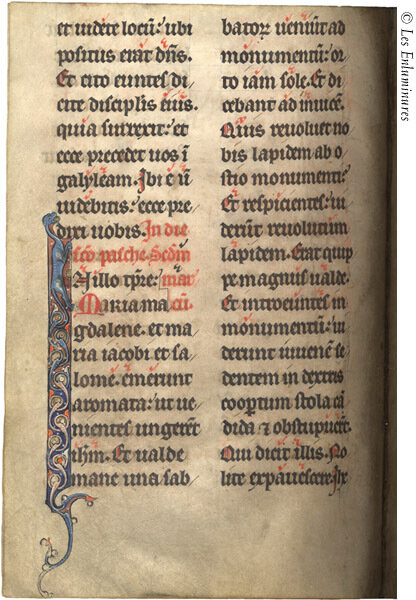 et videte locu͞m: ubi
positus erat dn͞s.
Et cito euntes di
cite discipl͞is eius.
quia surrexit: et
ecce precedet vos ī
galyleam. Ibi eū
uidebitis: ecce pre
dixi vobis. In die
sc͞o pasche. Scd͞m
In illo tp͞re: mar
Maria ma cū.
gdalene. et ma
ria iacobi et sa
lome. emerunt
aromata: ut ue
nientes ungerēt
ih͞m. Et valde
mane una sab
bator͞ ueniūt ad
monumentū: or
to iam sole. Et di
cebant ad inuicē.
Quis reuoluet no
bis lapidem ab o
stio monumenti?
Et respicientes: ui
derūt reuolutum
lapidem. Erat quip
pe magnus ualde.
Et introeuntes in
monumentū: ui
derunt iuuenē se
dentem in dextris
coop͞tum stola cā
dida ⁊ obstupuerūt.
Qui dicit illis. No
lite expauescere. Ih͞
© Les Enluminures